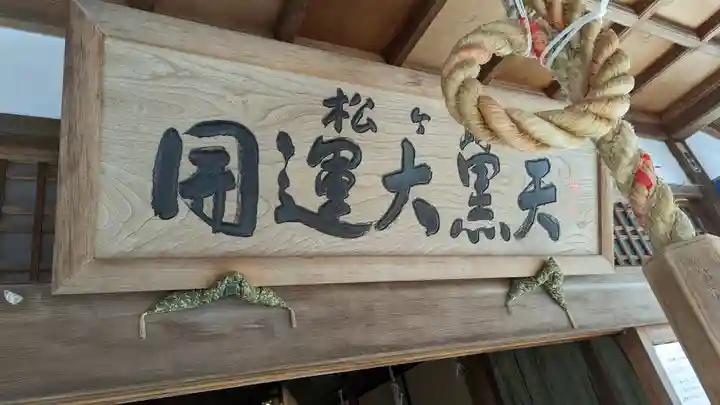 松ヶ
開運大黒天